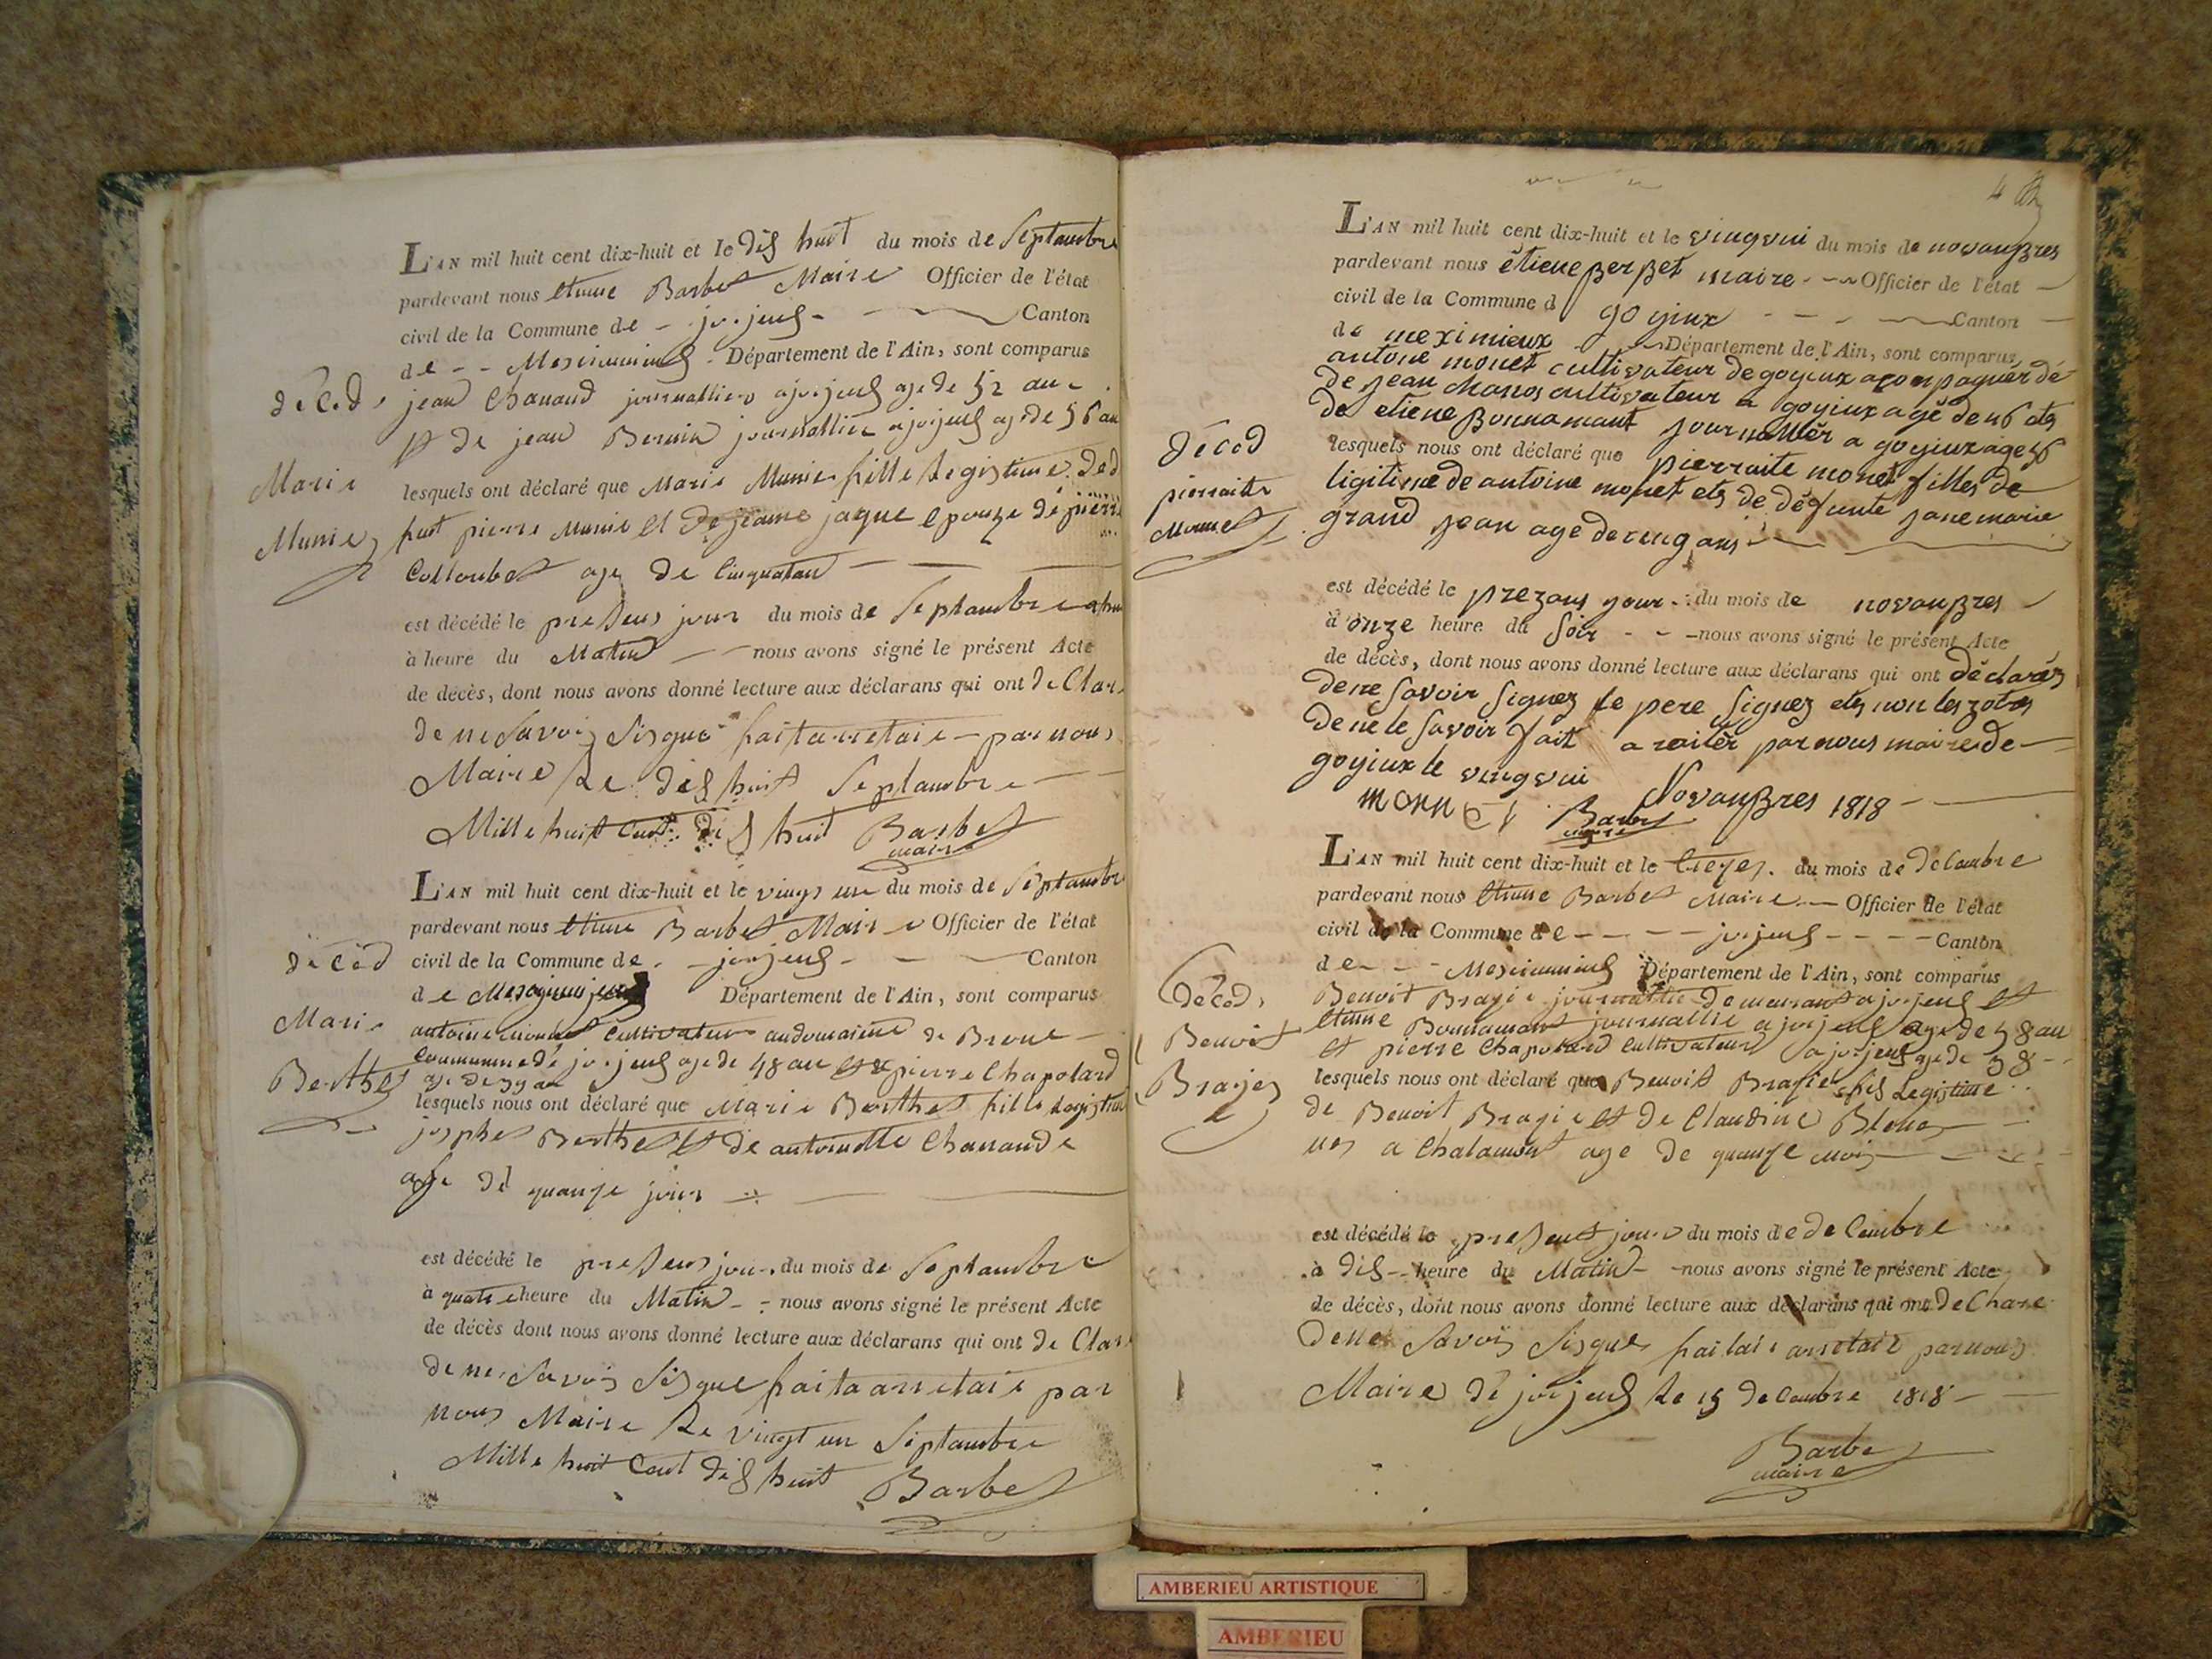 L'AN mil huit cent dix-huit et le dis huit du mois de Septambre
pardevant nous etiene Barbet Maire Officier de l'état
civil de la Commune de - jorjeus - Canton
de - - Meximieus - Département de l'Ain, sont comparus
jean Chanaud journallier a jorjeus age de 52 an
et de jean Bernin journallier a jorjeus age de 56 an
lesquels ont déclaré que Marie Munier fille Legistime ded
fuut pierre Munie et de jeanne jaque epouze de pierre
Colloubet age de Cinquatan
est décédé le presens jour du mois de Septambre
à heure du Matin nous avons signé le présent Acte
de décès, dont nous avons donné lecture aux déclarans qui ont de Clare
de ne savoir Sisgue fait arretaie par nous
Maire Le dis huit Septambre
Mille huit Cent dis huit Barbet
maire
déCed
Marie
Munie
L'AN mil huit cent dix-huit et le vingt un du mois de Septambre
pardevant nous etiene Barbet Maire Officier de l'état
civil de la Commune de - jorjeus - Canton
de Département de l'Ain, sont comparus
antoine monet Cultivateur audomaine de Brone
Commune de jorjeus age de 48 an et pierre Chapolard
age de 39 an
lesquels nous ont déclaré que Marie Berthet fille Legistime
josphe Berthet et de antoinette Chanande
age de quanze jour
est décédé le presens jour du mois de Septambre
à quatre heure du Matin - - nous avons signé le présent Acte
de décès dont nous avons donné lecture aux déclarans qui ont de Clare
de ne savoir Sisgue fait a arretaie par
nous Maire Le vingt un Septambre
Mille huit Cent dis huit Barbet
déCéd
Marie
Berthet
4
L'AN mil huit cent dix-huit et le vingvui du mois de novanbres
pardevant nous étiene Berbet maire Officier de l'état
civil de la Commune d goyieux Canton
de meximieux Département de l'Ain, sont comparus
antoine monet cultivateur de goyieux aconpagner de
de jean chanos cultivateur a goyieux agé de 46 ets
de etiene Bonnamant journallier a goyieux age 56
lesquels nous ont déclaré que pierraite monet filles de
ligitime de antoine monet ets de défunte jane marie
grand jean age de cinq ans
est décédé le prezans jour du mois de novanbres
à onze heure du Soir - - nous avons signé le présent Acte
de décès, dont nous avons donné lecture aux déclarans qui ont déclarés
de ne savoir signez le pere signez ets non les zotres
de ne le savoir fait a raiter par nous maire de
goyieux le vingvui Novanbres 1818
monnet Barbet
maire
Décéd
pierraite
Monnet
L'AN mil huit cent dix-huit et le treyes du mois de deCembre
pardevant nous Etiene Barbet Maire Officier de l'état
civil de la Commune de - - - - jorjeus - - - - Canton
de - - Meximieus Département de l'Ain, sont comparus
Benoit Bragie journallie demeurant a jorjeus et
etiene Bonnamant journallie a jorjeus age de 58 an
et pierre Chapolard Cultivateur a jorjeus age de 38
lesquels nous ont déclaré que Benoit Bragie fils Legistime
de Benoit Bragie et de Claudine
nes a Chalamont age de quanze mois
est décédé le present jour du mois de deCembre
à dis heure du Matin nous avons signé le présent Acte
de décès, dont nous avons donné lecture aux déclarans qui ont deClare
de ne savoir Sisgue fait arretaie par nous
Maire de jorjeus Le 13 deCembre 1818
Barbet
maire
déCéd
Benoit
Brajes
AMBERIEU ARTISTIQUE
AMBERIEU